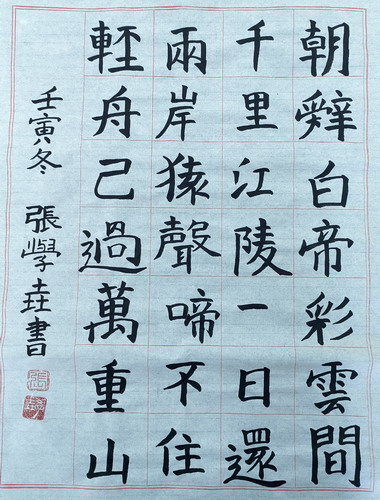 朝辤白帝彩雲間
千里江陵一日還
兩岸猿聲啼不住
輊舟己過萬重山
壬寅冬 張學垚書